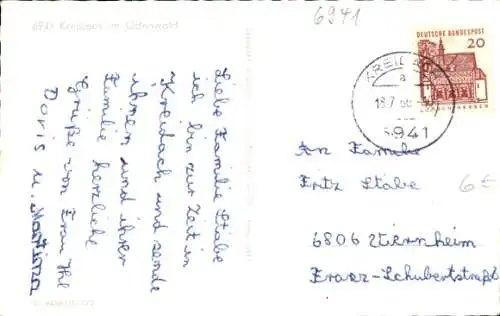 6941 Kreidach im Odenwald
6941
DEUTSCHE BUNDESPOST
20
KREIDACH
a
18.7.
6941
Liebe Familie Stäbe
ich bin zur Zeit in
Kreidach und sende
ihnen und ihrer
Familie herzliche
Grüße von Frau Ihl
Doris u. Martina
An Familie
Fritz Stäbe
6806 Viernheim
Franz-Schubertstraße
6€